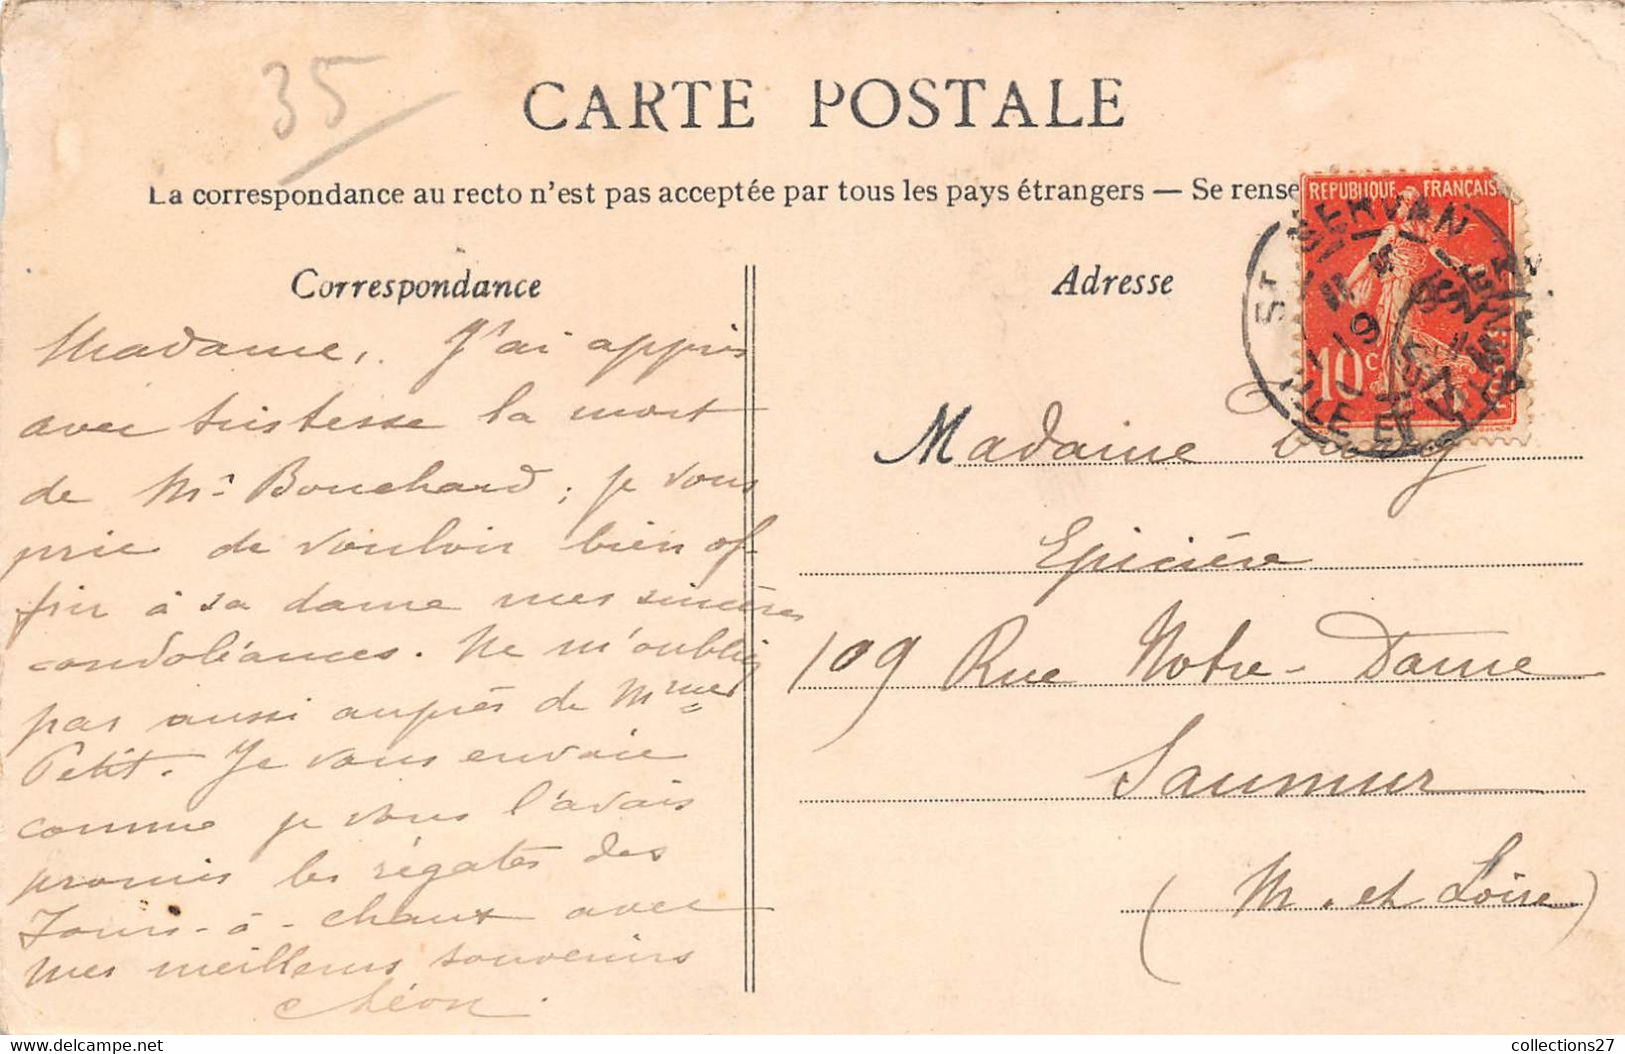 35
CARTE POSTALE
La correspondance au recto n'est pas acceptée par tous les pays étrangers — Se rense
REPUBLIQUE FRANÇAISE
10c
ST SERVAN
ILLE ET V
Correspondance
Madame, J'ai appris
avec tristesse la mort
de Mr Bouchard ; je vous
prie de vouloir bien of
frir à sa dame mes sincères
condoléances. Ne m'oubliez
pas aussi auprès de Mmes
Petit. Je vous envoie
comme je vous l'avais
promis les régates des
Fours-à-chaux avec
mes meilleurs souvenirs
Adresse
Madame
Epicière
109 Rue Notre-Dame
Saumur
(M. et Loire)
www.delcampe.net
collections27